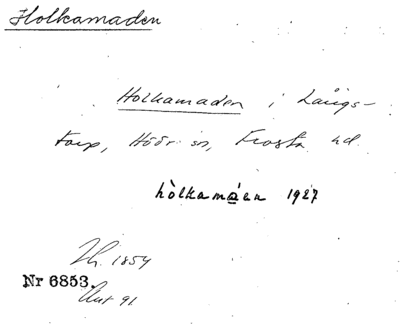 Holkamaden
Holkamaden i Långs-
torp, Höör sn, Frosta hd.
hòlkamáen 1927
Nr 6853.